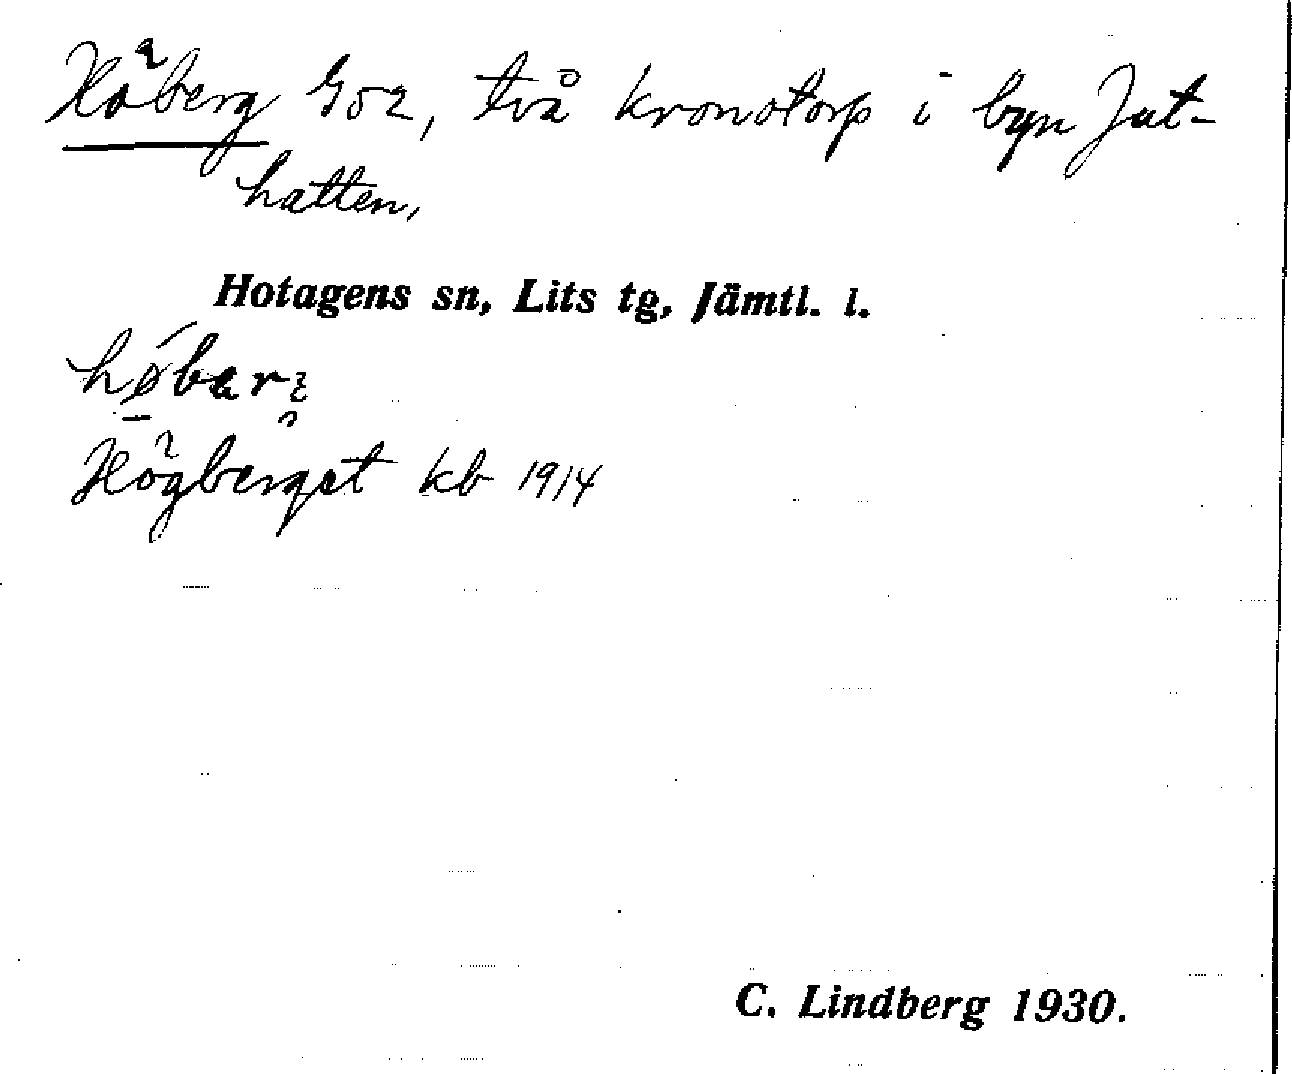 Höberg 1 o 2, två kronotorp i byn Jut-
hatten,
Hotagens sn, Lits tg, Jämtl. l.
Högberget kb 1914
C. Lindberg 1930.